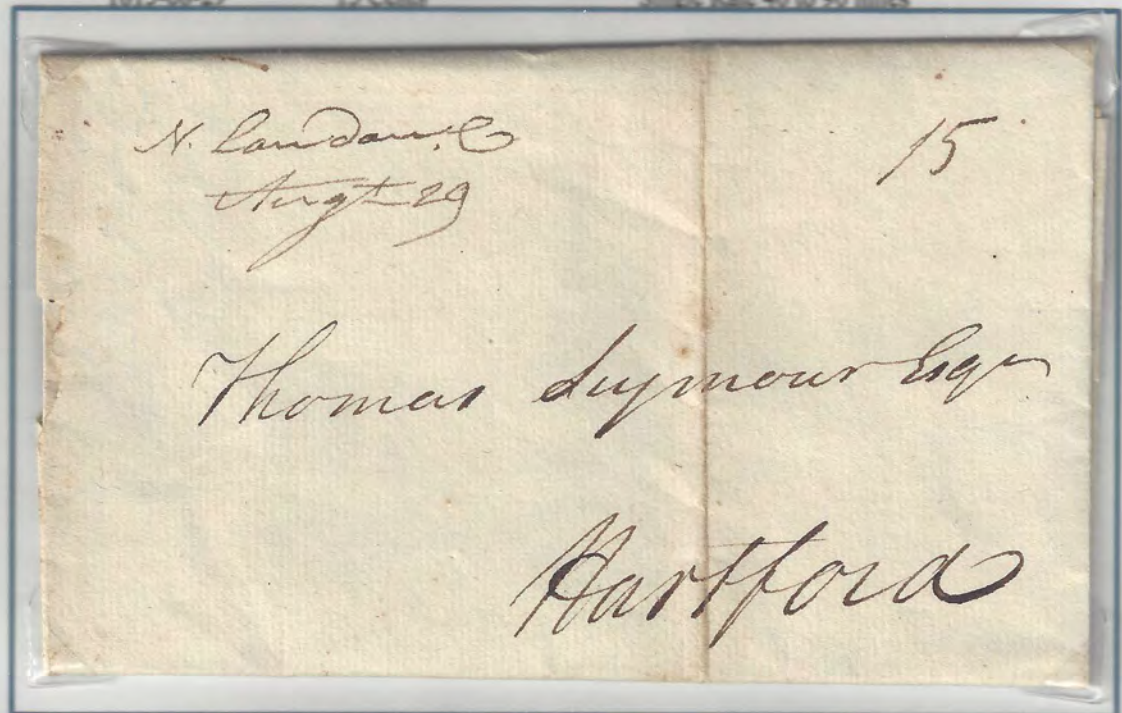 N. London. C
Augt 29
15
Thomas Seymour Esqr
Hartford